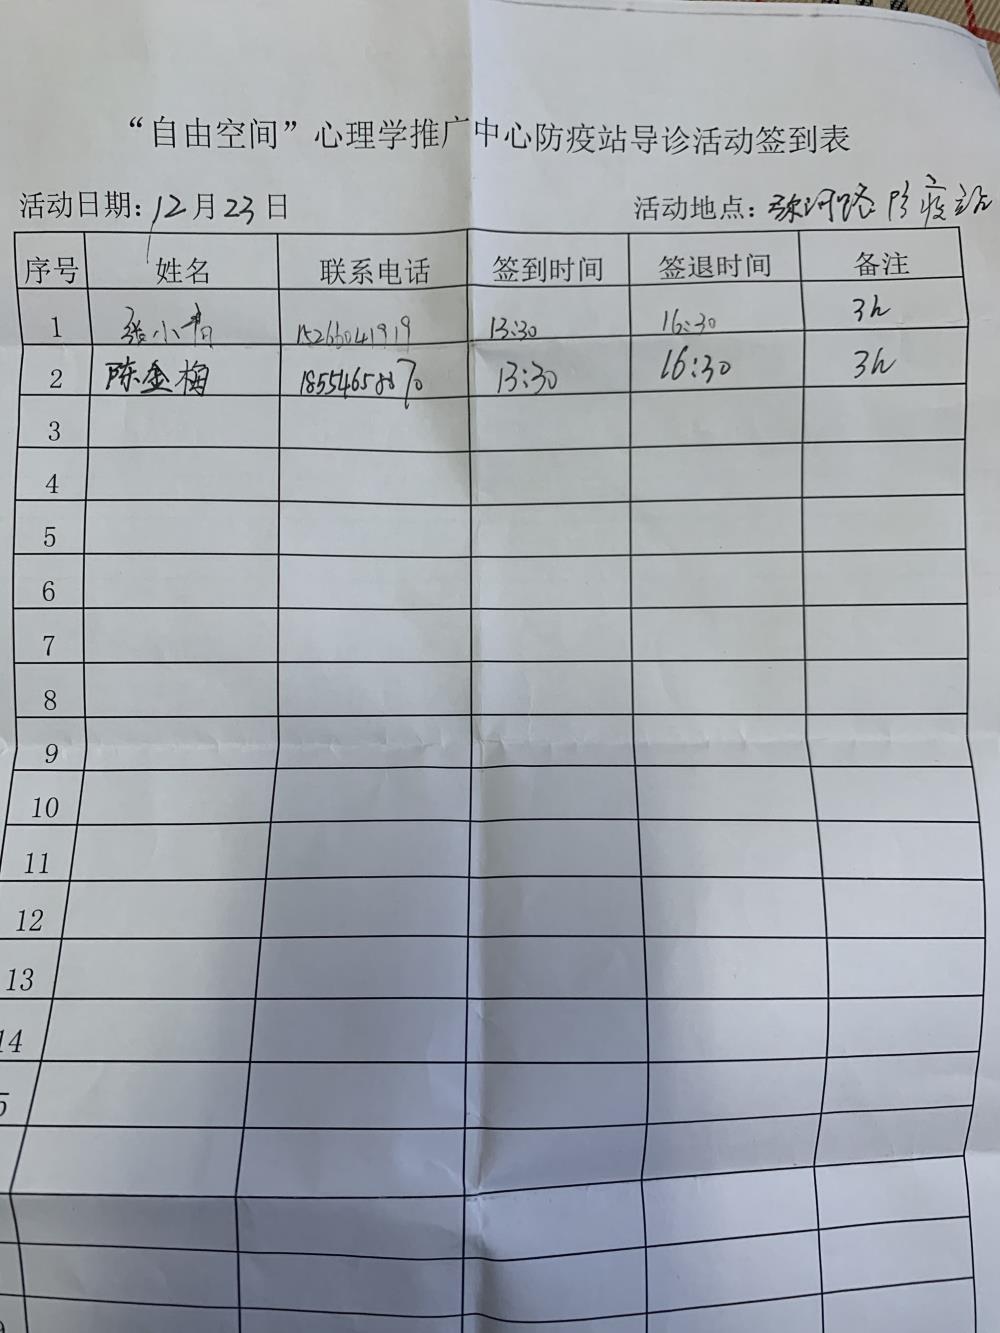 “自由空间”心理学推广中心防疫站导诊活动签到表
活动日期：12月23日 活动地点：弥河路防疫站
序号 姓名 联系电话 签到时间 签退时间 备注
1 张小 15266041919 13:30 16:30 3h
2 陈金梅 13:30 16:30 3h
3
4
5
6
7
8
9
10
11
12
13
14
5